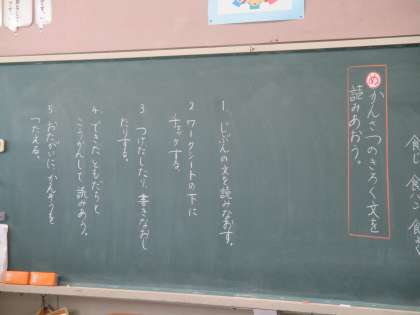 食 食べる 食事
め かんさつのきろく文を
読みあおう。
1. じぶんの文を読みなおす。
2 ワークシートの下に
チェックする。
3 つけたしたり、書きなおし
たりする。
4. できた ともだちと
こうかんして 読みあう。
5 おたがいに かんそうを
つたえる。